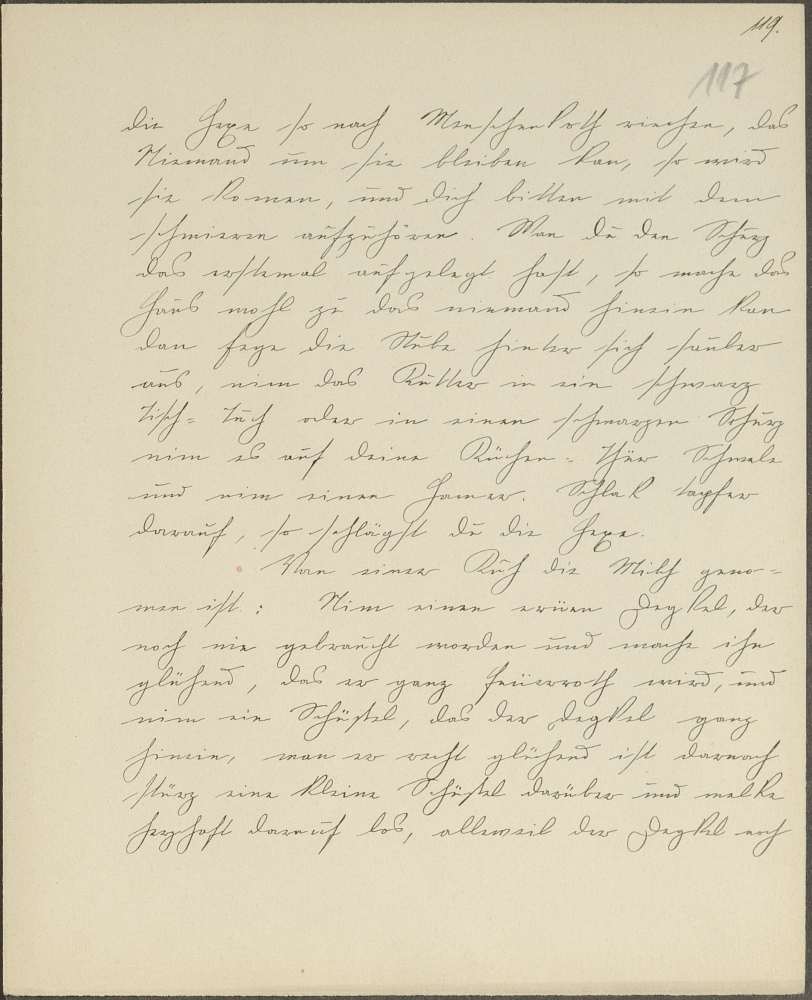 119.
117
die Hexe so nach Menschenkoth riechen, das
Niemand um sie bleiben kan, so wird
sie komen, und dich bitten mit dem
schmieren aufzuhören. Wan du den Schurz
das erstemal aufgelegt hast, so mache das
Haus wohl zu das niemand hinein kan
dan fege die Stube hinter sich sauber
aus, nim das Kutter in ein schwarz
Tisch= Tuch oder in einen schwarzen Schurz
nim es auf deine Küchen= Thür Schwele
und nim einen Hamer. Schlak tapfer
darauf, so schlägst du die Hexe.
Wan einer Kuh die Milch geno=
men ist.: Nim einen Degkel, der
noch nie gebraucht worden und mache ihn
glühend, das er ganz feüerroth wird, und
nim ein Schüssel, das der Degkel ganz
hinein, wan er recht glühend ist darnach
stürz eine kleine Schüssel darüber und melke
herzhaft darauf los, alleweil der Degkel noch